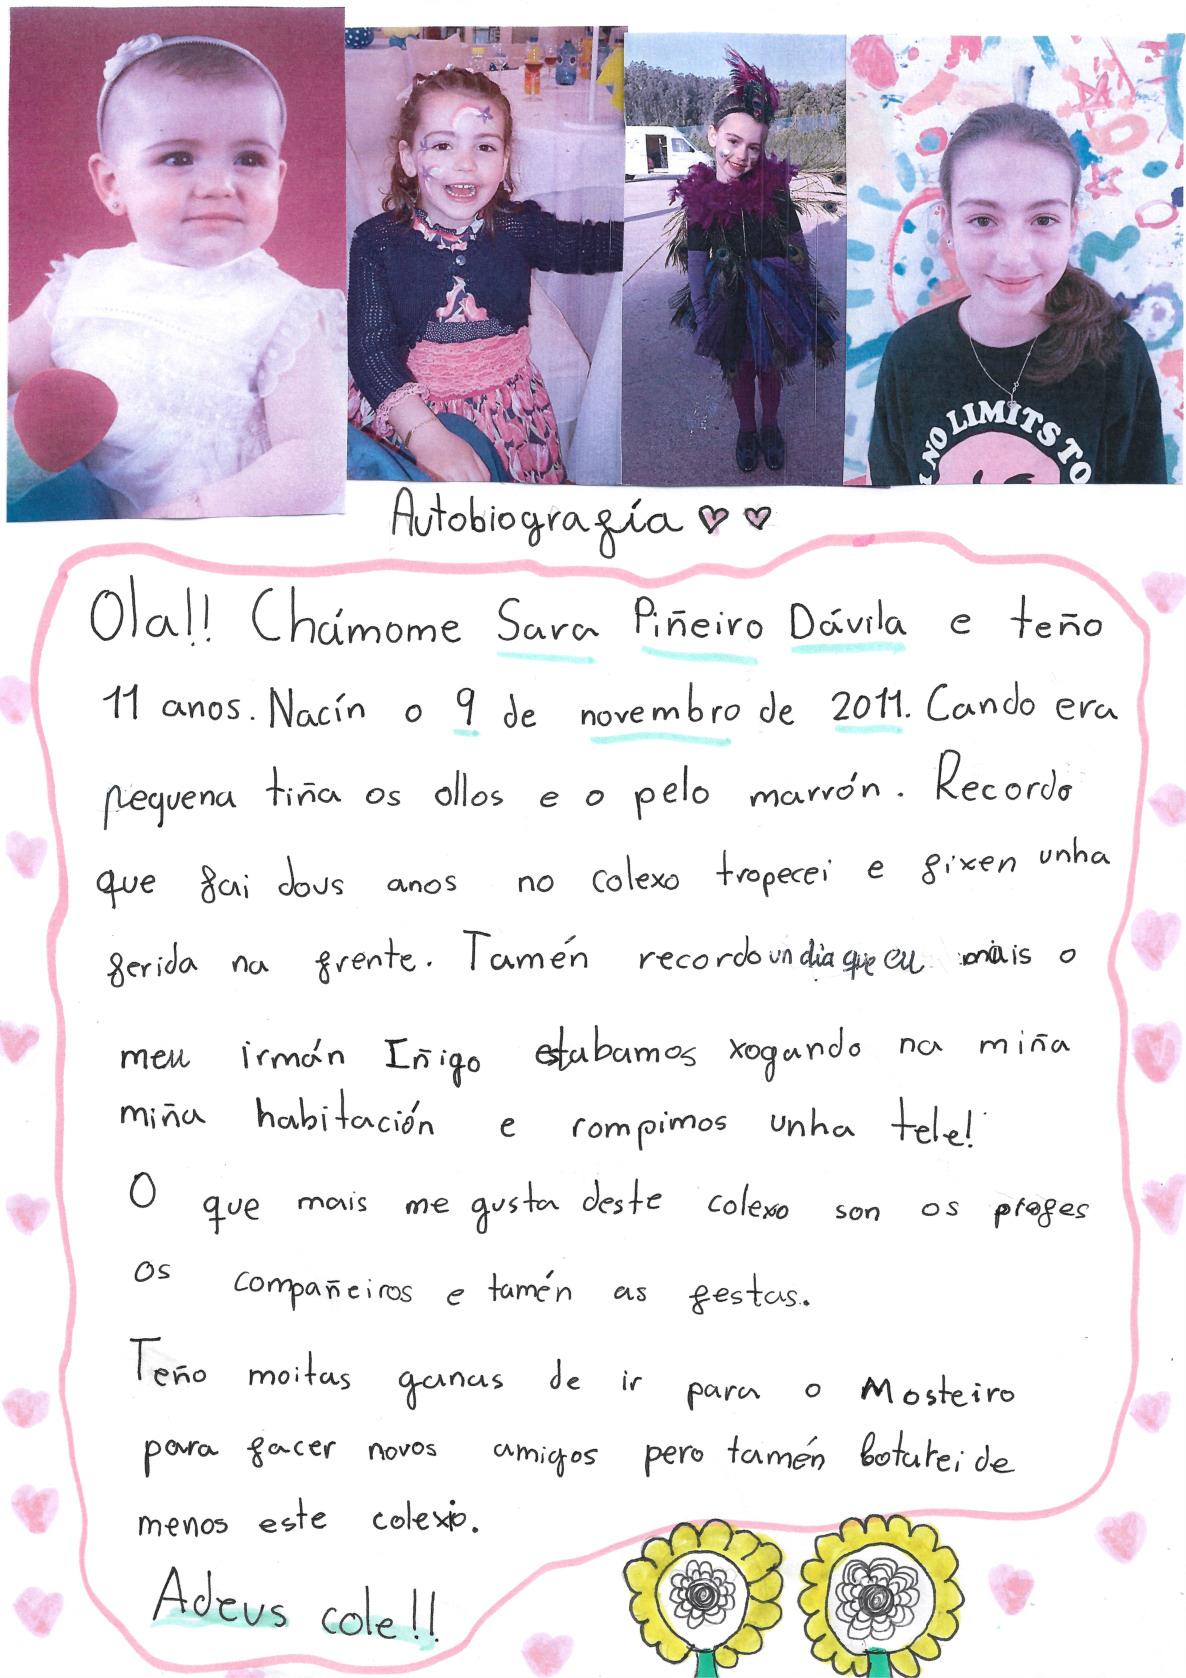 NO LIMITS TO
Autobiografía
Ola!! Chámome Sara Piñeiro Dávila e teño
11 anos. Nacín o 9 de novembro de 2011. Cando era
pequena tiña os ollos e o pelo marrón. Recordo
que fai dous anos no colexo tropecei e fixen unha
ferida na frente. Tamén recordo un dia que eu mais o
meu irmán Iñigo estabamos xogando na miña
miña habitación e rompimos unha tele!
O que mais me gusta deste colexo son os profes
os compañeiros e tamén as festas.
Teño moitas ganas de ir para o Mosteiro
para facer novos amigos pero tamén botarei de
menos este colexio.
Adeus cole!!